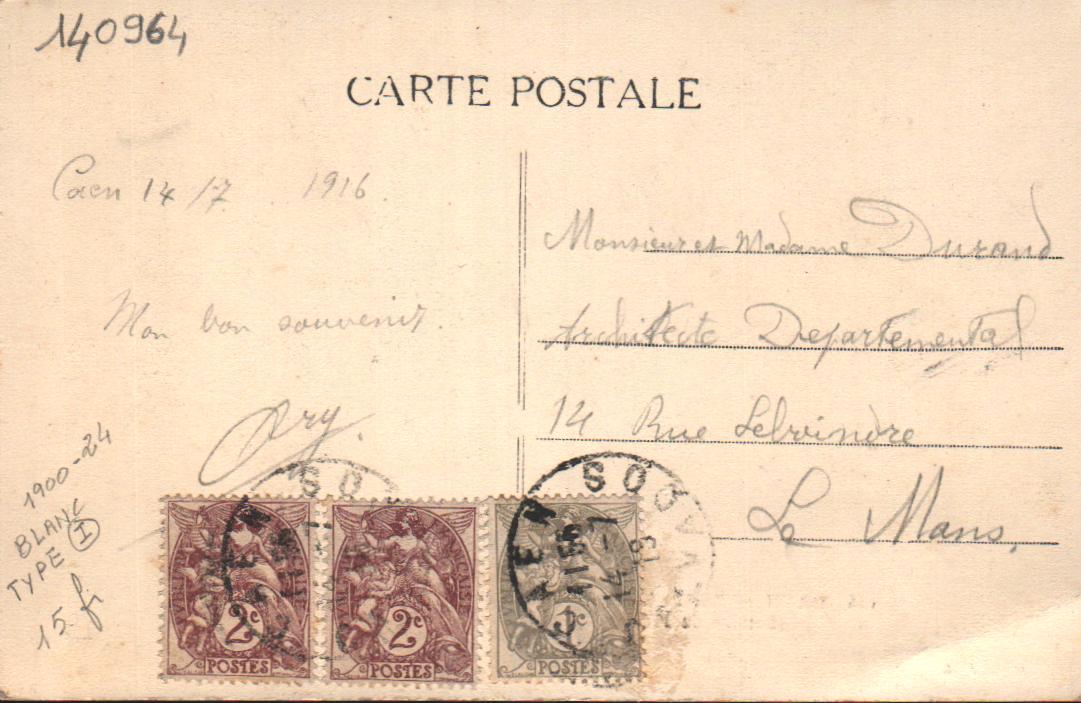 140964
CARTE POSTALE
Caen 14/7 1916
Mon bon souvenir.
Ory.
Monsieur et Madame Durand
Architecte Departemental
14 Rue
Le Mans.
1900-24
BLANC
TYPE I
15 fr
2c POSTES
2c POSTES
1c POSTES